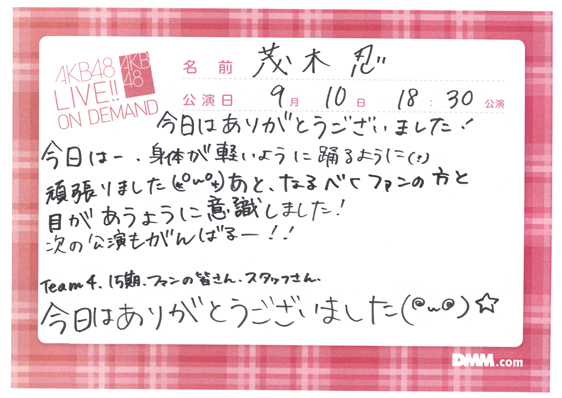 AKB48
LIVE!!
ON DEMAND
AKB
48
名前 茂木 忍
公演日 9月 10日 18:30 公演
今日はありがとうございました!
今日はー、身体が軽いように踊るように(?)
頑張りました(*^o^*)あと、なるべくファンの方と
目があうように意識しました!
次の公演もがんばるー!!
Team4、15期、ファンの皆さん、スタッフさん、
今日はありがとうございました(◎ω◎)☆
DMM.com